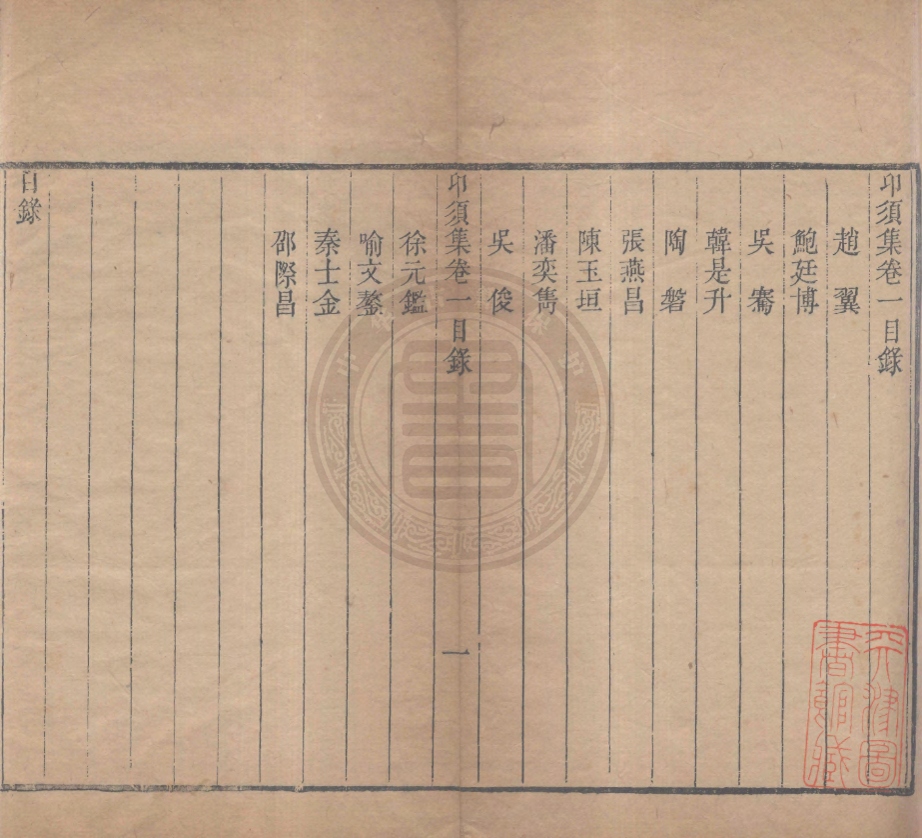 卬須集卷一目錄
趙翼
鮑廷博
吳騫
韓是升
陶磐
張燕昌
陳玉垣
潘奕雋
吳俊
卬須集卷一目錄
一
徐元鑑
喻文鏊
秦士金
邵際昌
目錄